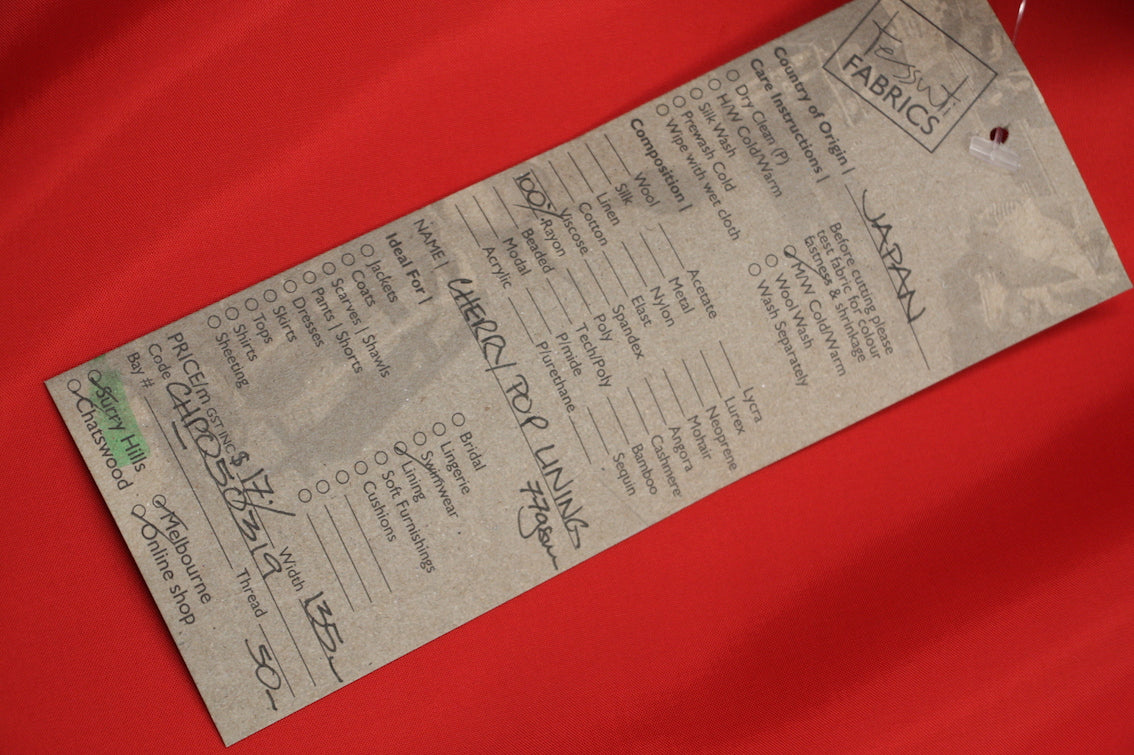 tessuti
FABRICS
Country of Origin | JAPAN
Care Instructions |
Dry Clean (P)
H/W Cold/Warm
Silk Wash
Prewash Cold
Wipe with wet cloth
Before cutting please
test fabric for colour
fastness & shrinkage
M/W Cold/Warm
Wool Wash
Wash Separately
Composition |
Wool
Silk
Linen
Cotton
Viscose
100% Rayon
Beaded
Modal
Acrylic
Acetate
Metal
Nylon
Elast
Spandex
Poly
Tech/Poly
P/mide
P/urethane
Lycra
Lurex
Neoprene
Mohair
Angora
Cashmere
Bamboo
Sequin
NAME | CHERRY POP LINING
77gsm
Ideal For |
Jackets
Coats
Scarves | Shawls
Pants | Shorts
Dresses
Skirts
Tops
Shirts
Sheeting
Bridal
Lingerie
Swimwear
Lining
Soft Furnishings
Cushions
PRICE/m GST INC $ 17/ Width 135
Code CHPO50319
Bay # Thread 50
Surry Hills
Chatswood
Melbourne
Online shop